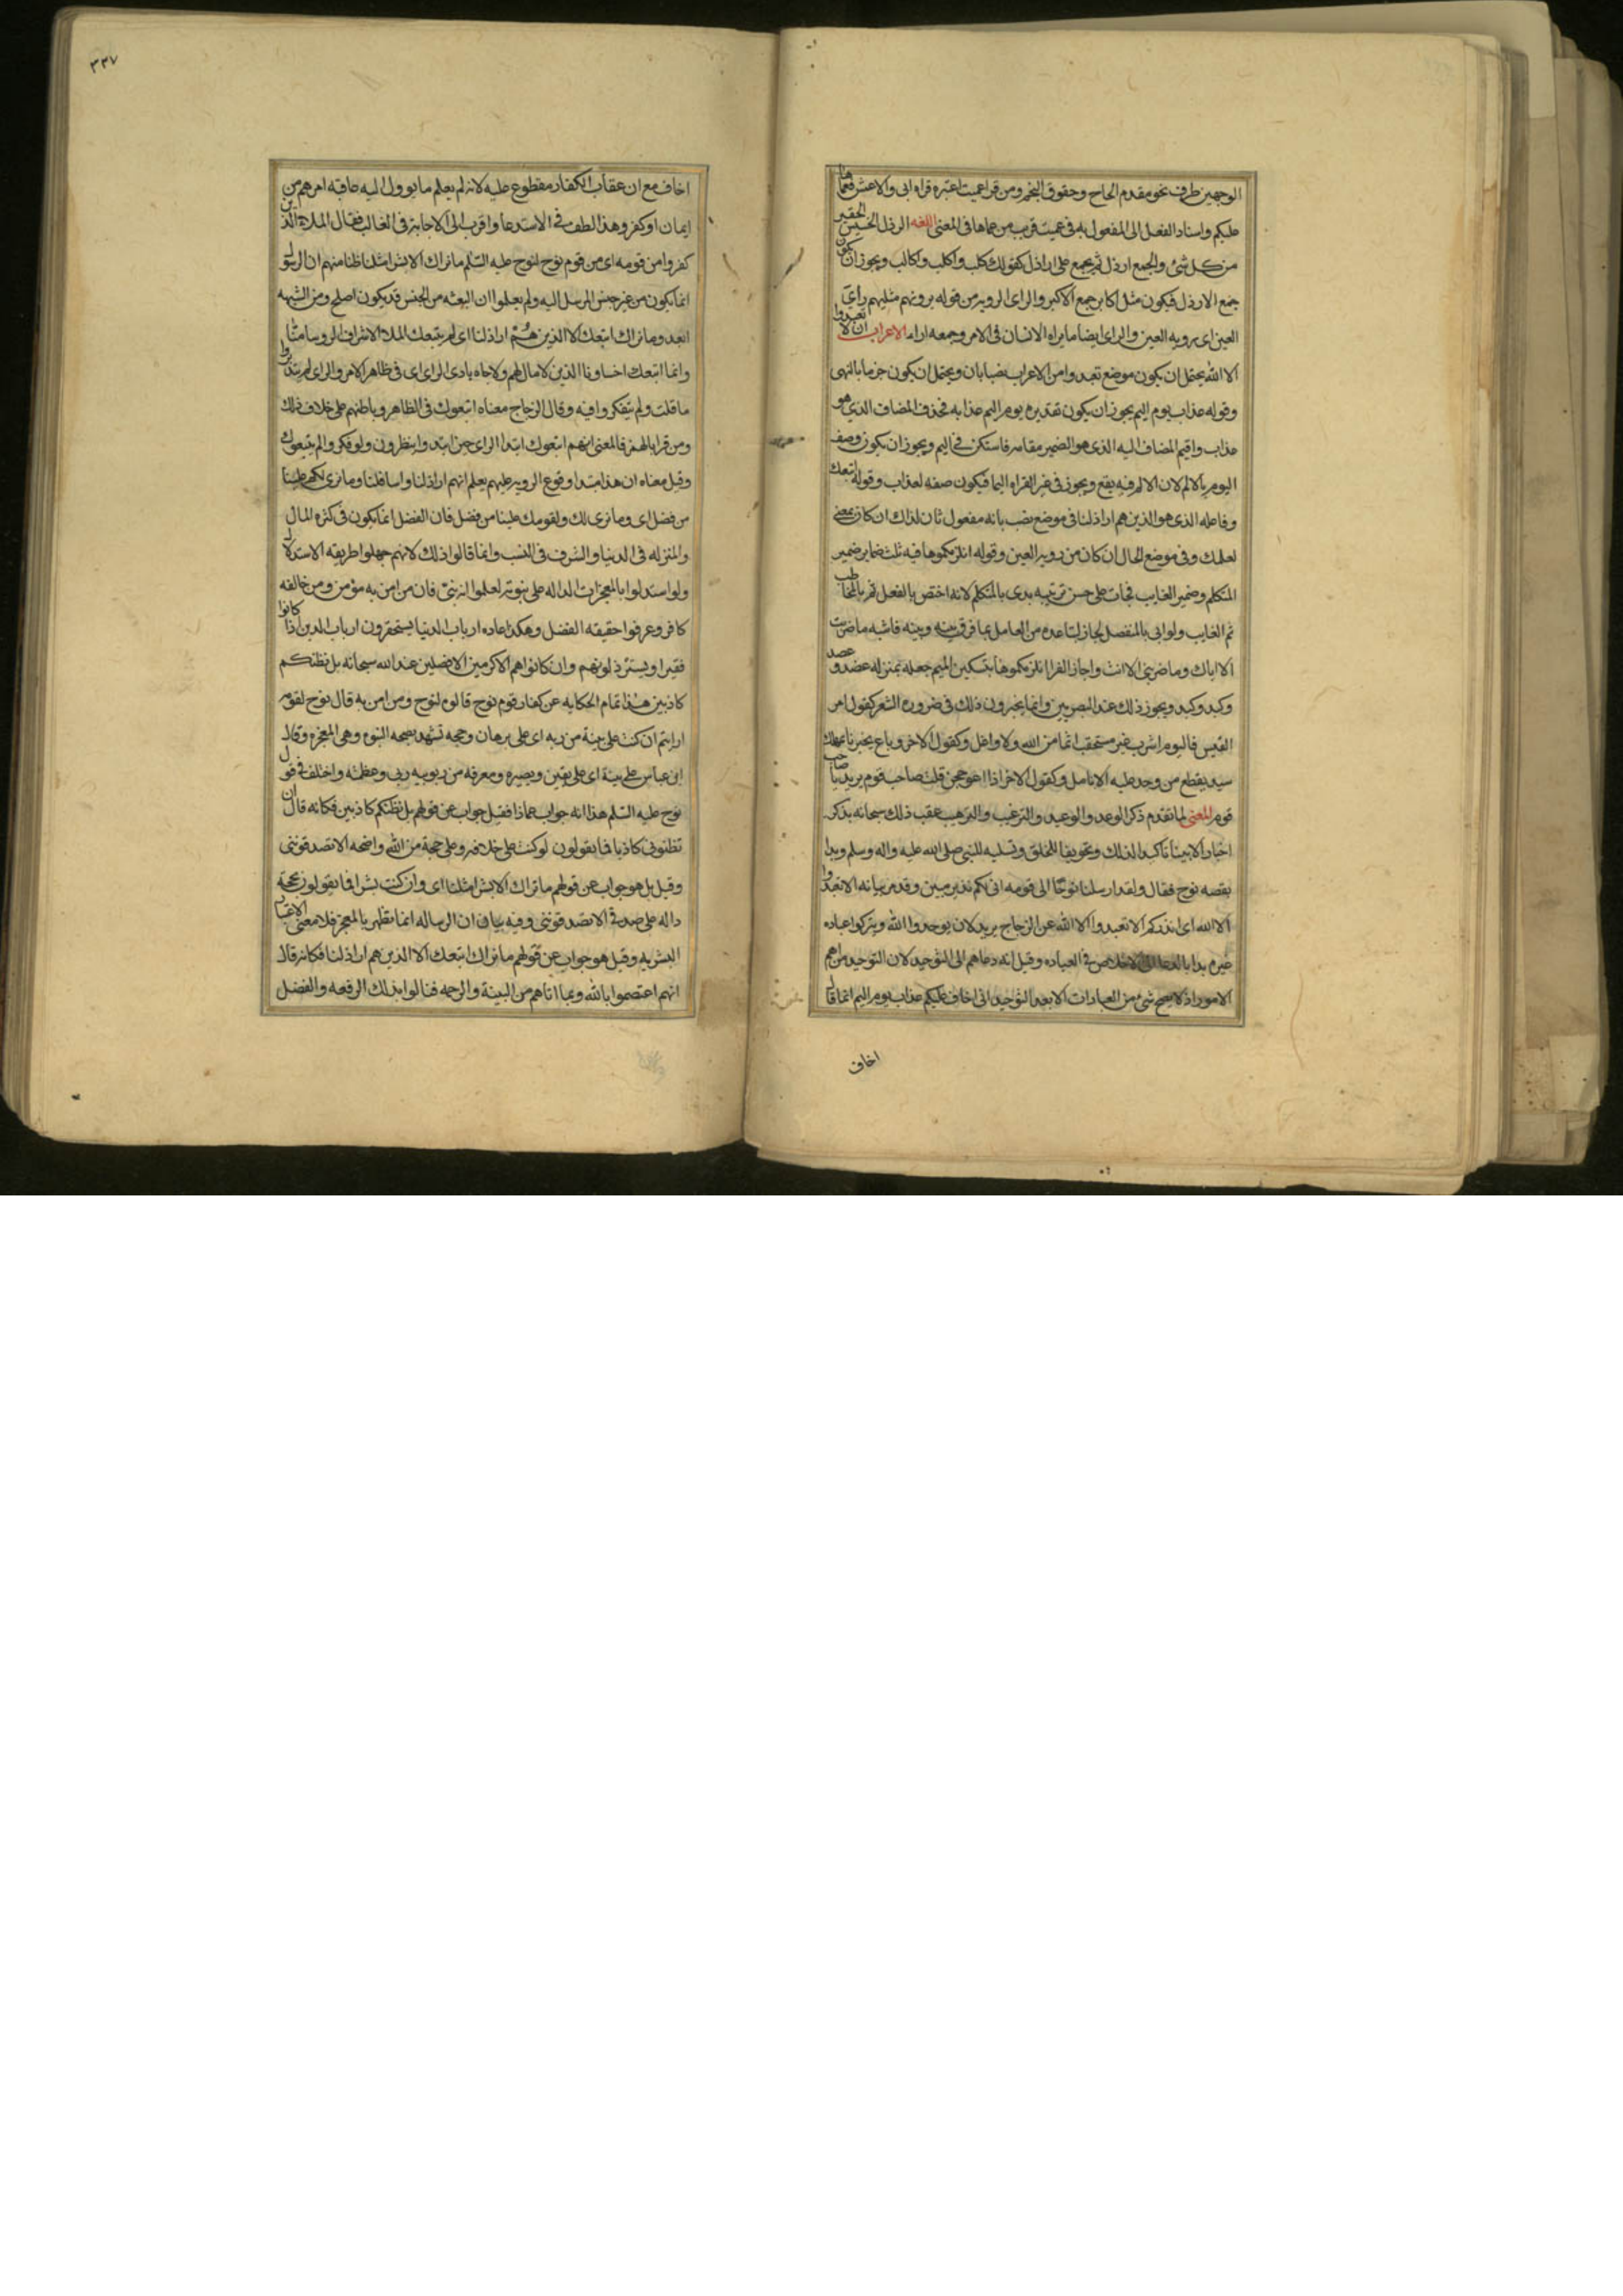 الوجهين ظرف نحو مقدم الحاج وحقوق النجم ومن قرا عميت اعتبره قراه ابى والاعمش فعماها
عليكم واسناد الفعل الى المفعول به فى عميت قريب من عماها فى المعنى اللغه الرذل الخسيس الحقير
من كل شئ والجمع ارذل ثم يجمع على اراذل كقولك كلب واكلب واكالب ويجوز ان يكون
جمع الارذل فيكون مثل اكابر جمع الاكبر والراى الرويه من قوله يرونهم مثليهم راى
العين اى رويه العين والراى ايضا ما يراه الانسان فى الامر وجمعه اراء الاعراب ان لا تعبدوا
الا الله يحتمل ان يكون موضع تعبدوا من الاعراب نصبا بان ويحتمل ان يكون جزما بالنهى
وقوله عذاب يوم اليم يجوز ان يكون تقديره يوم اليم عذابه فحذف المضاف الذى هو
عذاب واقيم المضاف اليه الذى هو الضمير مقامه فاستكن فى اليم ويجوز ان يكون وصف
اليوم بالالم لان الالم فيه يقع ويجوز فى غير القراه اليما فيكون صفه لعذاب وقوله اتبعك
وفاعله الذى هو الذين هم اراذلنا فى موضع نصب بانه مفعول ثان لنراك ان كان بمعنى
نعلمك وفى موضع الحال ان كان من رويه العين وقوله انلزمكموها فيه ثلث ضماير ضمير
المتكلم وضمير الغايب فجات على حسن ترتيبه بدى بالمتكلم لانه اختص بالفعل ثم بالمخاطب
ثم الغايب ولو اتى بالمنفصل لجاز لتباعده من العامل بما فرق بينه وبينه فاشبه ما ضربت
الا اياك وما ضربنى الا انت واجاز الفرا انلزمكموها بتسكين الميم جعله بمنزله عضد وعضد
وكبد وكبد ويجوز ذلك عند البصريين وانما يخبرون ذلك فى ضروره الشعر كقول امر
القيس فاليوم اشرب غير مستحقب اثما من الله ولا واغل وكقول الاخر وناع يخبرنا بمهلك
سيد يقطع من وجد عليه الانامل وكقول الاخر اذا اعوججن قلت صاحب قوم يريد يا صاحب
قوم المعنى لما تقدم ذكر الوعد والوعيد والترغيب والترهيب عقب ذلك سبحانه بذكر
اخبار الانبيا تاكيدا لذلك وتخويفا للخلق وتسليه للنبى صلى الله عليه واله وسلم وبدا
بقصه نوح فقال ولقد ارسلنا نوحا الى قومه انى لكم نذير مبين وقد مر بيانه الا تعبدوا
الا الله اى انذركم الا تعبدوا الا الله عن الزجاج يريد لان يوحدوا الله ويتركوا عباده
غيره بدا بالدعا الى الاخلاص فى العباده وقيل انه دعاهم الى التوحيد لان التوحيد من اهم
الامور اذ لا يصح شئ من العبادات الا بعد التوحيد انى اخاف عليكم عذاب يوم اليم انما قال
اخاف
٣٣٧
اخاف مع ان عقاب الكفار مقطوع عليه لانه لم يعلم ما يوول اليه عاقبه امرهم من
ايمان او كفر وهذا الطف فى الاستدعا واقرب الى الاجابه فى الغالب فقال الملا الذين
كفروا من قومه اى من قوم نوح لنوح عليه السلم ما نراك الا بشرا مثلنا ظنا منهم ان الرسول
انما يكون من غير جنس المرسل اليه ولم يعلموا ان البعثه من الجنس قد يكون اصلح ومن الشبهه
ابعد وما نراك اتبعك الا الذين هم اراذلنا اى لم يتبعك الملا الاشراف الروسا منا
وانما اتبعك اخساونا الذين لا مال لهم ولا جاه بادى الراى اى فى ظاهر الامر والراى لم يتدبروا
ما قلت ولم يتفكروا فيه وقال الزجاج معناه اتبعوك فى الظاهر وباطنهم على خلاف ذلك
ومن قرا بالهمز فالمعنى انهم اتبعوك ابتدا الراى حين ابتدوا ينظرون ولو فكروا لم يتبعوك
وقيل معناه ان هذا مبتدا وقوع الرويه عليهم يعلم انهم اراذلنا واسافلنا وما نرى لكم علينا
من فضل اى وما نرى لك ولقومك علينا من فضل فان الفضل انما يكون فى كثره المال
والمنزله فى الدنيا والشرف فى النسب وانما قالوا ذلك لانهم جهلوا طريقه الاستدلال
ولو استدلوا بالمعجزات الداله على نبوته لعلموا انه نبى فان من امن به مؤمن ومن خالفه
كافر وعرفوا حقيقه الفضل وهكذا عاده ارباب الدنيا يستحقرون ارباب الدين اذا كانوا
فقيرا ويسترذلونهم وان كانوا هم الاكرمين الافضلين عند الله سبحانه بل نظنكم
كاذبين هذا تمام الحكايه عن كفار قوم نوح قالوه لنوح ومن امن به قال نوح لقومه
ارايتم ان كنت على بينة من ربه اى على برهان وحجه تشهد بصحه النبوه وهى المعجزه وقال
ابن عباس على بينة اى على يقين وبصيره ومعرفه من ربوبيه ربى وعظمته واختلف فى قول
نوح عليه السلم هذا انه جواب عماذا فقيل جواب عن قولهم بل نظنكم كاذبين فكانه قال ان
تظنونى كاذبا فما تقولون لو كنت على خلافه وعلى حجة من الله واضحه الا تصدقوننى
وقيل بل هو جواب عن قولهم ما نراك الا بشرا مثلنا اى وان كنت بشرا فما تقولون بحجة
داله على صدقى الا تصدقوننى وفيه بيان ان الرساله انما تظهر بالمعجز فلا معنى لاعتبار
البشريه وقيل هو جواب عن قولهم ما نراك اتبعك الا الذين هم اراذلنا فكانه قال
انهم اعتصموا بالله وبما اتاهم من البينة والرحمه فنالوا بذلك الرفعه والفضل